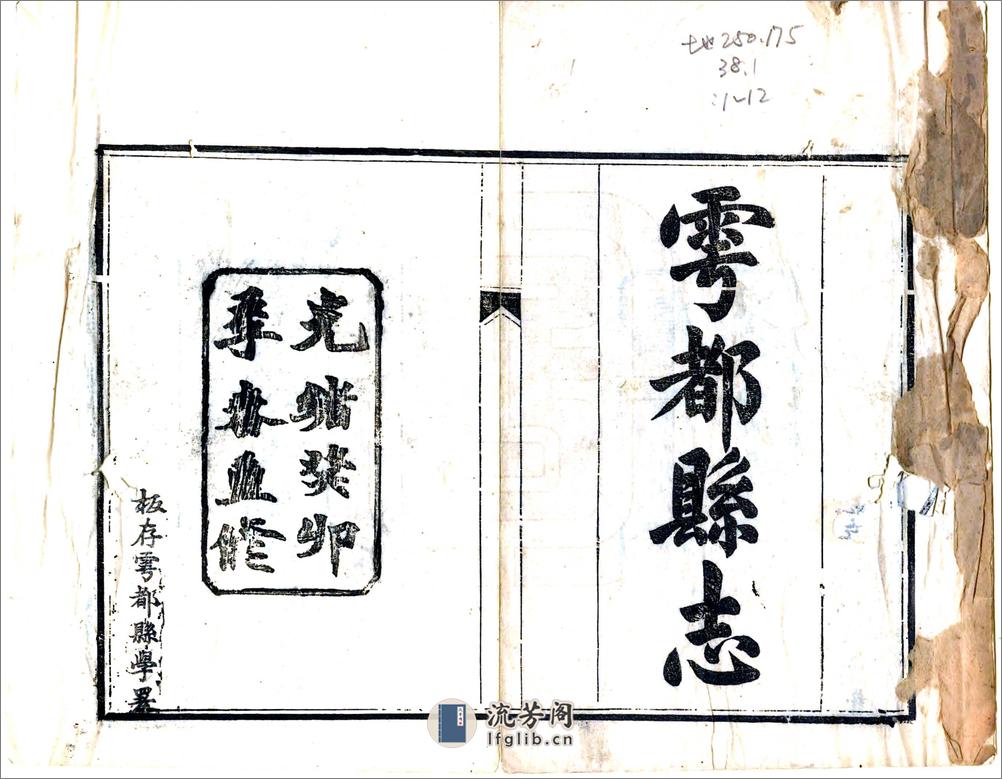 地250.175
38.1
:1~12
雩都縣志
光緒癸卯
年重修
板存雩都縣學署
流芳阁
lfglib.cn